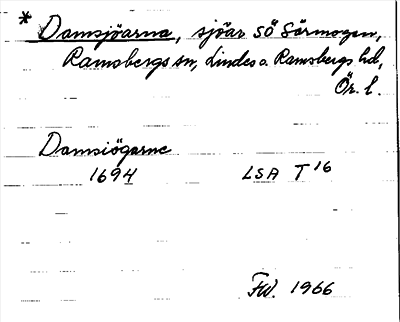 * Damsjöarna, sjöar SÖ Sörmogen,
Ramsbergs sn, Lindes o. Ramsbergs hd,
Ör. l.
Damsiögarne
1694 LSA T 16
FW. 1966